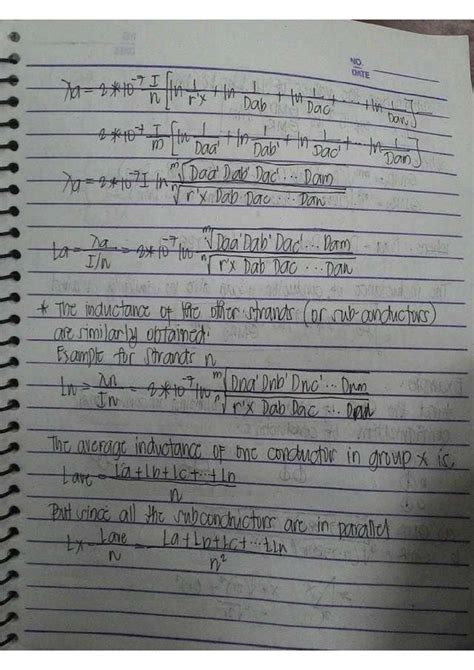 NO.
DATE
λa = 2*10^-7 I/n [ln 1/r'x + ln 1/Dab + ln 1/Dac + ... + ln 1/Dan]
2*10^-7 I/m [ln 1/Daa' + ln 1/Dab' + ln 1/Dac' + ... ln 1/Dam]
λa = 2*10^-7 I ln m√(Daa' Dab' Dac' ... Dam) / n√(r'x Dab Dac ... Dan)
La = λa / I/n = 2*10^-7 ln m√(Daa' Dab' Dac' ... Dam) / n√(r'x Dab Dac ... Dan)
* The inductance of the other strands (or sub-conductors)
are similarly obtained.
Example for strands n
Ln = λn / In = 2*10^-7 ln m√(Dna' Dnb' Dnc' ... Dnm) / n√(r'x Dab Dac ... Dan)
The average inductance of one conductor in group x is,
Lave = La + Lb + Lc + ... + Ln / n
But since all the subconductors are in parallel
Lx = Lave / n = La + Lb + Lc + ... + Ln / n²